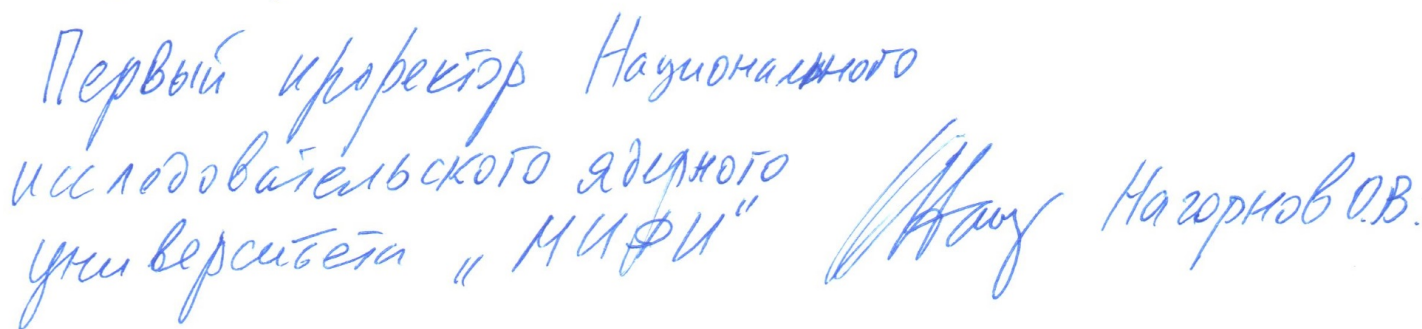 Первый проректор Национального
исследовательского ядерного
университета „МИФИ" Нагорнов О.В.